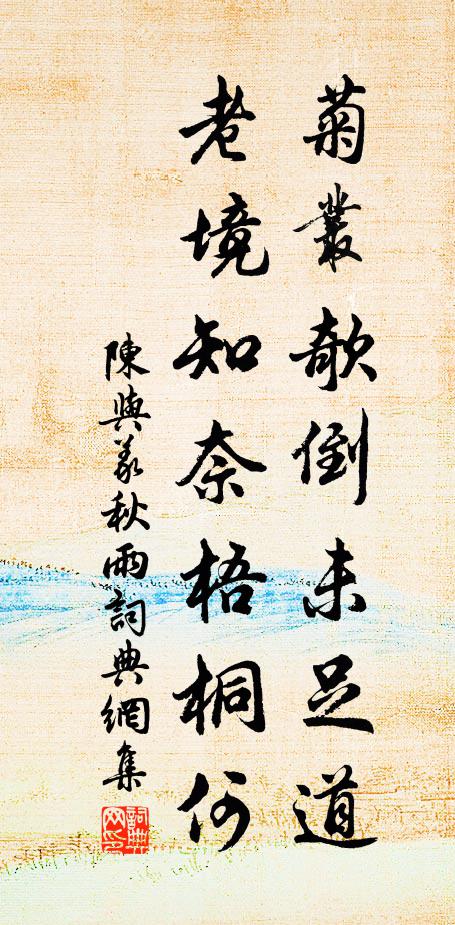 菊叢欹倒未足道
老境知奈梧桐何
陳與義秋雨詞典網集
詞典网印